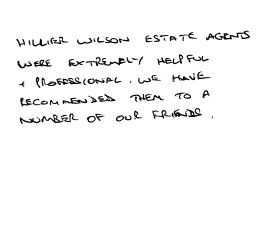 HILLIER WILSON ESTATE AGENTS
WERE EXTREMELY HELPFUL
& PROFESSIONAL. WE HAVE
RECOMMENDED THEM TO A
NUMBER OF OUR FRIENDS.